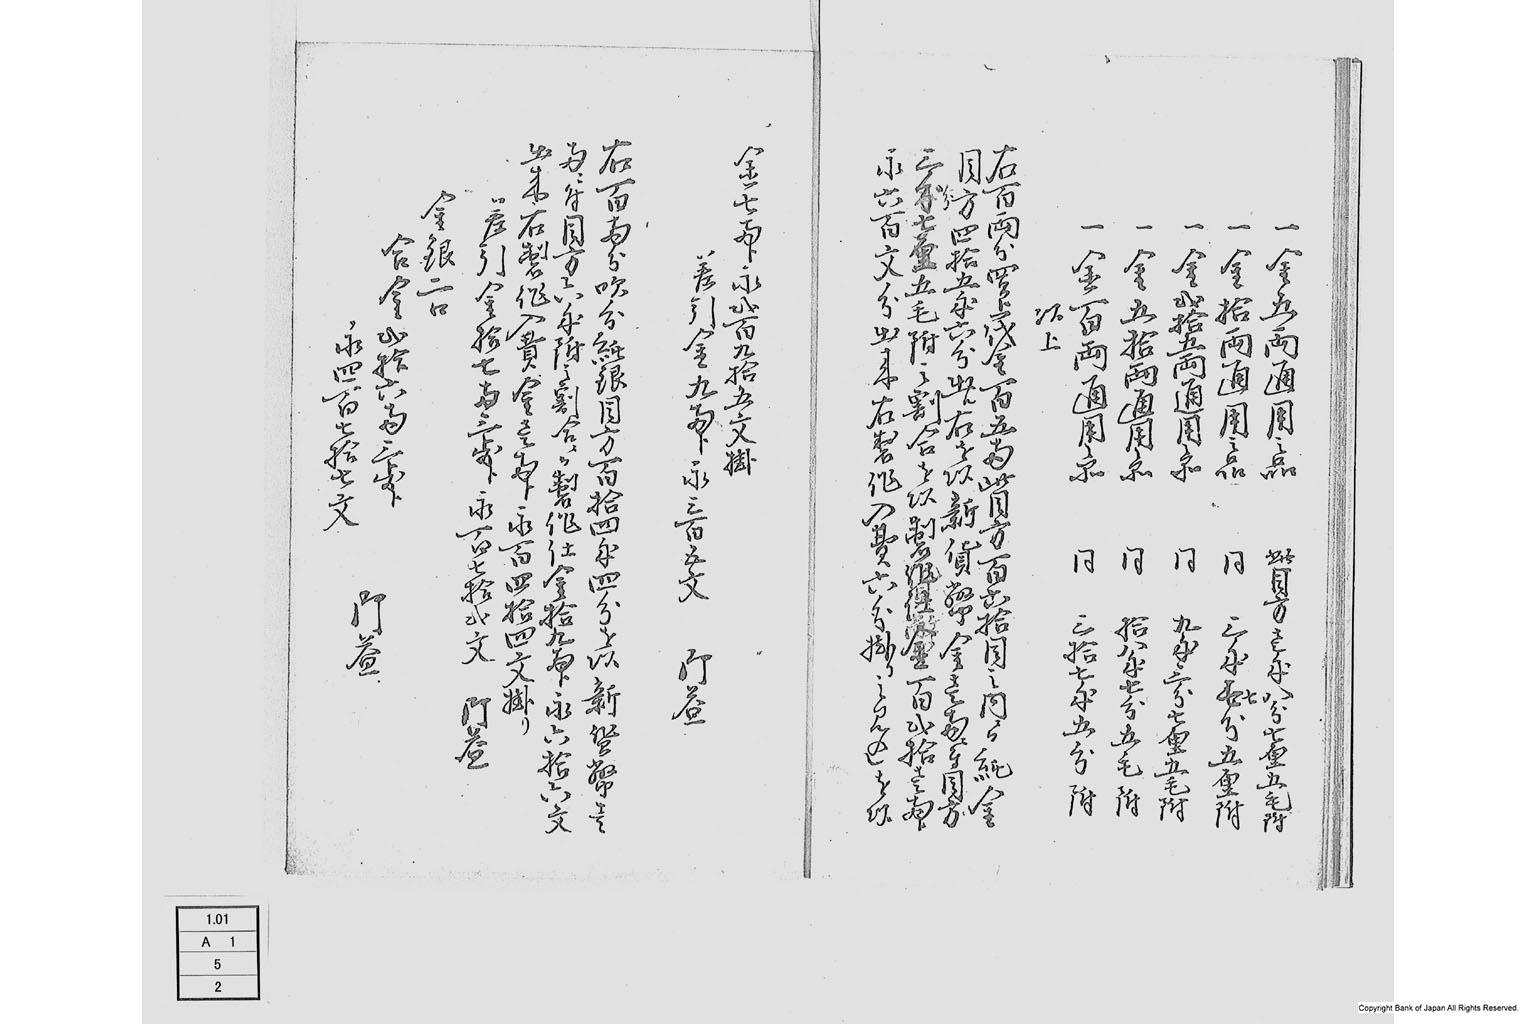 一金五両通用之品 此目方壱匁八分七厘五毛附
一金拾両通用之品 同 三匁七分五厘附
一金弐拾五両通用之品 同 九匁三分七厘五毛附
一金五拾両通用之品 同 拾八匁七分五毛附
一金百両通用之品 同 三拾七匁五分附
以上
右百両分買上代金百五両此目方百六拾目之内より純金
目方四拾五匁六分出ル右を以新貨幣金壱両ニ付目方
三分七厘五毛附之割合を以製 金百弐拾壱両ト
永六百文分出来右製作入費六分掛り之見込を以
金七両ト永弐百九拾五文掛
差引金九両ト永三百五文 御益
右百両分吹分純銀目方百拾四匁四分を以新貨幣壱
両ニ付目方六匁附之割合ニ製作仕金拾九両ト永六拾六文
出来右製作入費金壱両ト永百四拾四文掛り
差引金拾七両三歩ト永百七拾弐文 御益
金銀二口
合金弐拾六両三歩ト
永四百七拾七文 御益
1.01
A 1
5
2
Copyright Bank of Japan All Rights Reserved.